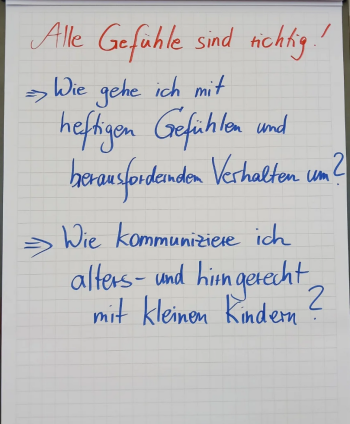 Alle Gefühle sind richtig!
⇒ Wie gehe ich mit
heftigen Gefühlen und
herausfordernden Verhalten um?
⇒ Wie kommuniziere ich
alters- und hirngerecht
mit kleinen Kindern?